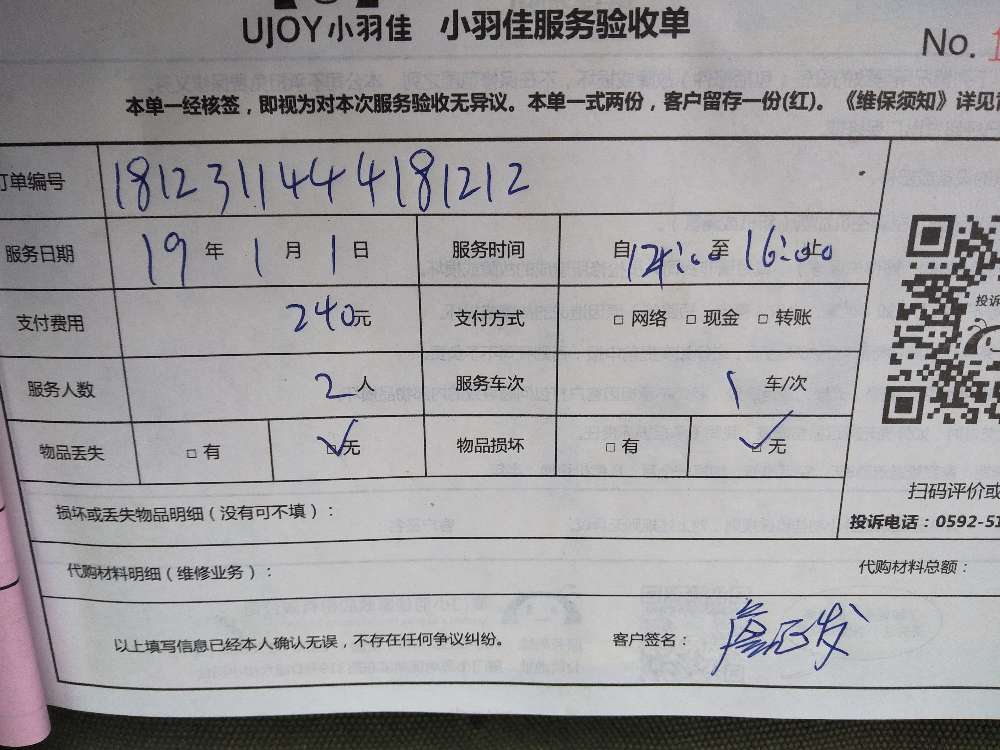 UJOY小羽佳 小羽佳服务验收单
No. 1
本单一经核签，即视为对本次服务验收无异议。本单一式两份，客户留存一份(红)。《维保须知》详见
订单编号 1812311444181212
服务日期 19 年 1 月 1 日 服务时间 自 14:00 至 16:00 止
支付费用 240元 支付方式 □ 网络 □ 现金 □ 转账
投诉
服务人数 2 人 服务车次 1 车/次
物品丢失 □ 有 ☑无 物品损坏 □ 有 ☑ 无
扫码评价或
损坏或丢失物品明细（没有可不填）：
投诉电话：0592-51
代购材料明细（维修业务）： 代购材料总额：
以上填写信息已经本人确认无误，不存在任何争议纠纷。 客户签名：